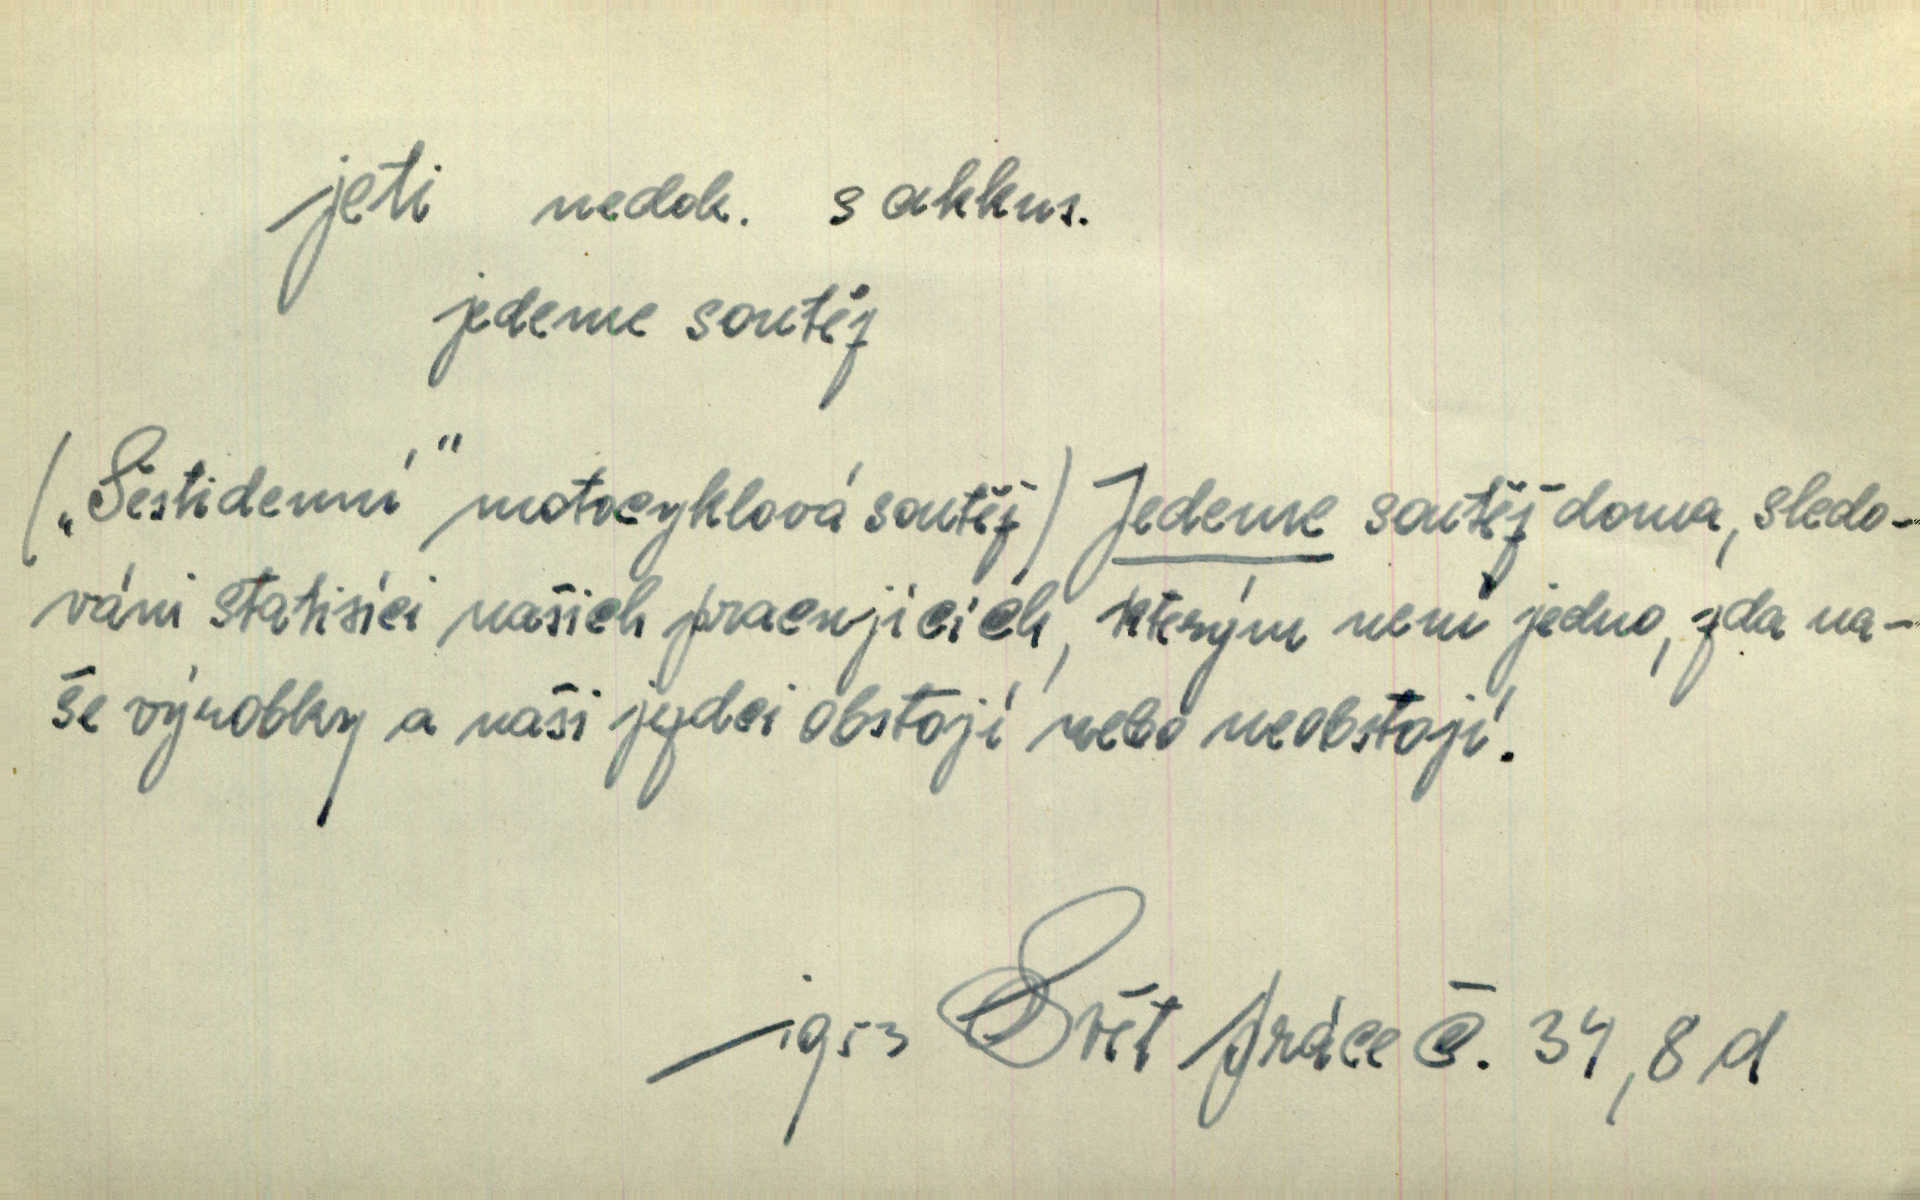 jeti nedok. s akkus.
jedeme soutěž
(„Šestidenní“ motocyklová soutěž) Jedeme soutěž doma, sledo-
váni statisíci našich pracujících, kterým není jedno, zda na-
še výrobky a naši jezdci obstojí nebo neobstojí.
1953 Svět práce č. 34, 8 d